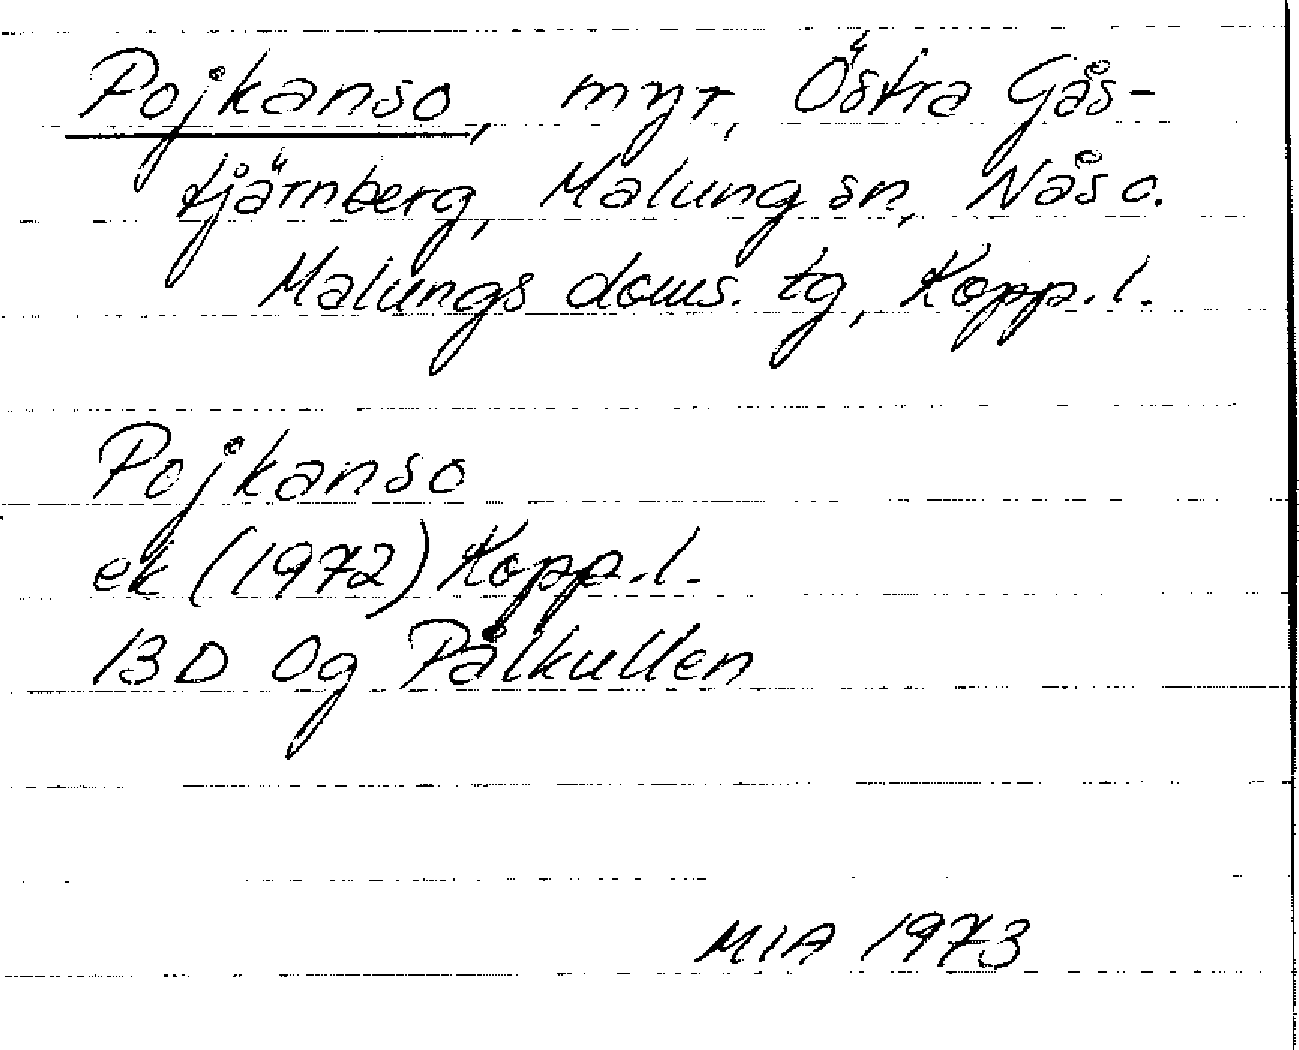 Pojkanso, myr, Östra Gås-
tjärnberg, Malung sn, Nås o.
Malungs doms. tg, Kopp. l.
Pojkanso
ek (1972) Kopp. l.
13 D 0g Pålkullen
MIA 1973